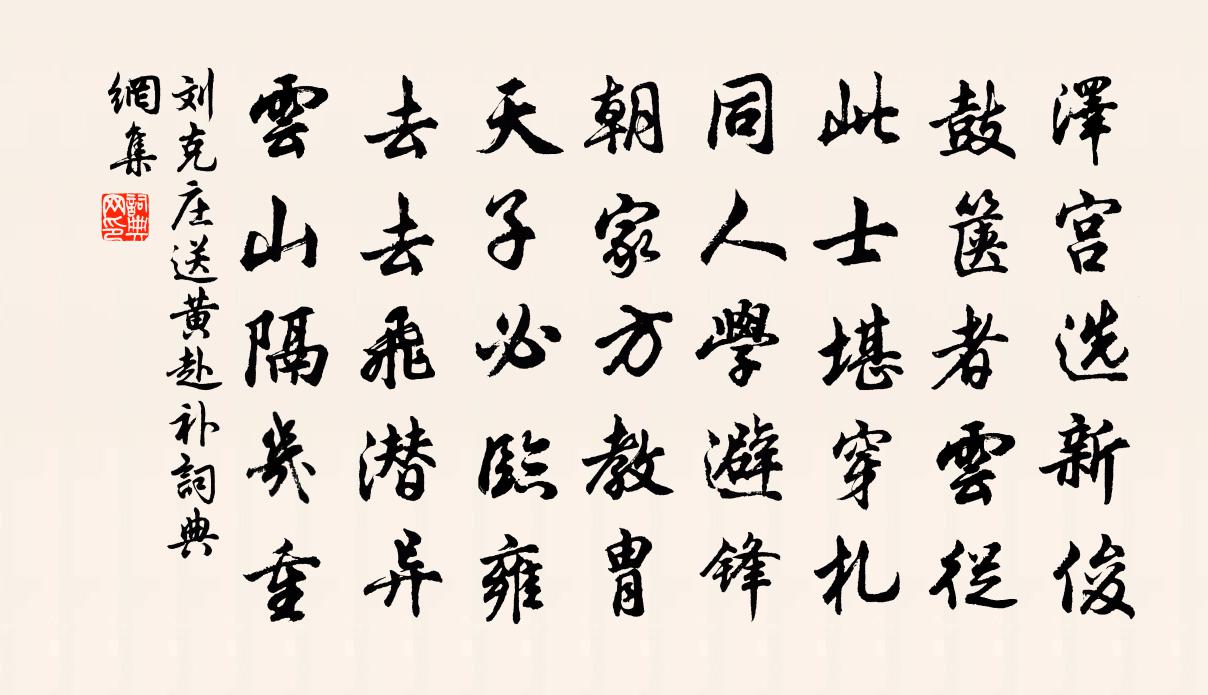 澤宫选新俊
鼓箧者雲從
此士堪穿札
同人學避锋
朝家方教胄
天子必臨雍
去去飛潜异
雲山隔幾重
刘克庄送黄赴补詞典
網集
詞典
网